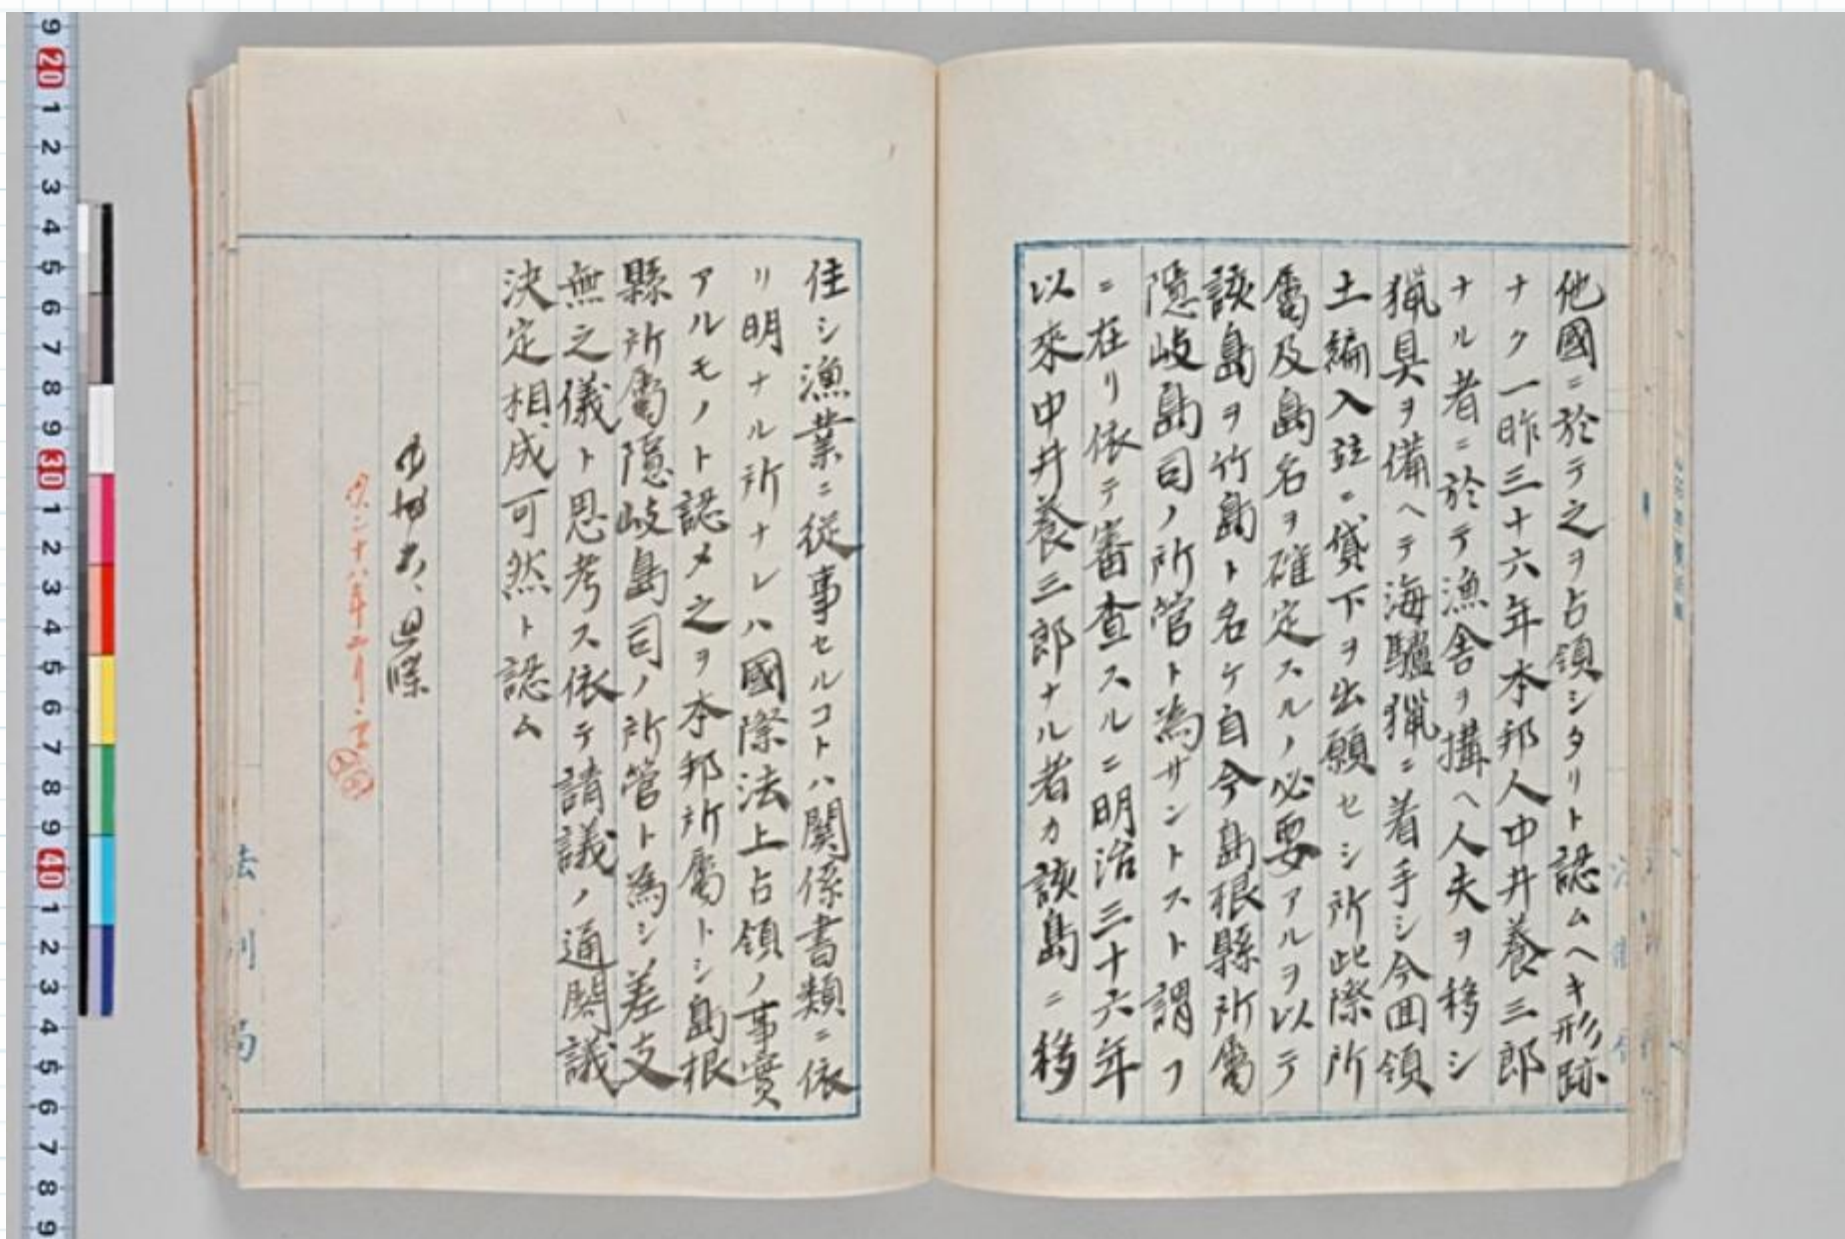 他國ニ於テ之ヲ占領シタリト認ムヘキ形跡
ナク一昨三十六年本邦人中井養三郎
ナル者ニ於テ漁舍ヲ搆ヘ人夫ヲ移シ
獵具ヲ備ヘテ海驢獵ニ着手シ今回領
土編入竝ニ貸下ヲ出願セシ所此際所
屬及島名ヲ確定スルノ必要アルヲ以テ
該島ヲ竹島ト名ケ自今島根縣所屬
隱岐島司ノ所管ト為サントスト謂フ
ニ在リ依テ審査スルニ明治三十六年
以來中井養三郎ナル者カ該島ニ移
住シ漁業ニ從事セルコトハ關係書類ニ依
リ明ナル所ナレハ國際法上占領ノ事實
アルモノト認メ之ヲ本邦所屬トシ島根
縣所屬隱岐島司ノ所管ト為シ差支
無之儀ト思考ス依テ請議ノ通閣議
決定相成可然ト認ム
法制局
9 20 1 2 3 4 5 6 7 8 9 30 1 2 3 4 5 6 7 8 9 40 1 2 3 4 5 6 7 8 9